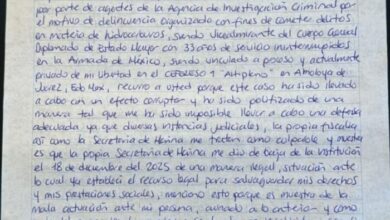 por parte de agentes de la Agencia de Investigación Criminal por
el motivo de delincuencia organizada con fines de cometer delitos
en materia de hidrocarburos, siendo Vicealmirante del Cuerpo General
Diplomado de Estado Mayor con 33 años de servicio ininterrumpidos
en la Armada de México, siendo vinculado a proceso y actualmente
privado de mi libertad en el CEFERESO 1 "Altiplano" en Almoloya de
Juárez, Edo Méx, recurro a usted porque este caso ha sido llevado
a cabo con un efecto corruptor y ha sido politizado de una
manera tal que me ha sido imposible llevar a cabo una defensa
adecuada ya que diversas instancias judiciales, la propia fiscalía
así como la Secretaría de Marina me tratan como culpable y muestra
es que la propia Secretaría de Marina me dio de baja de la institución
el 18 de diciembre del 2025 de una manera ilegal, situación ante
lo cual ya establecí el recurso legal para salvaguardar mis derechos
y mis prestaciones sociales, menciono esto porque es muestra de la
mala actuación ante mi persona, aunado a lo anterior y como